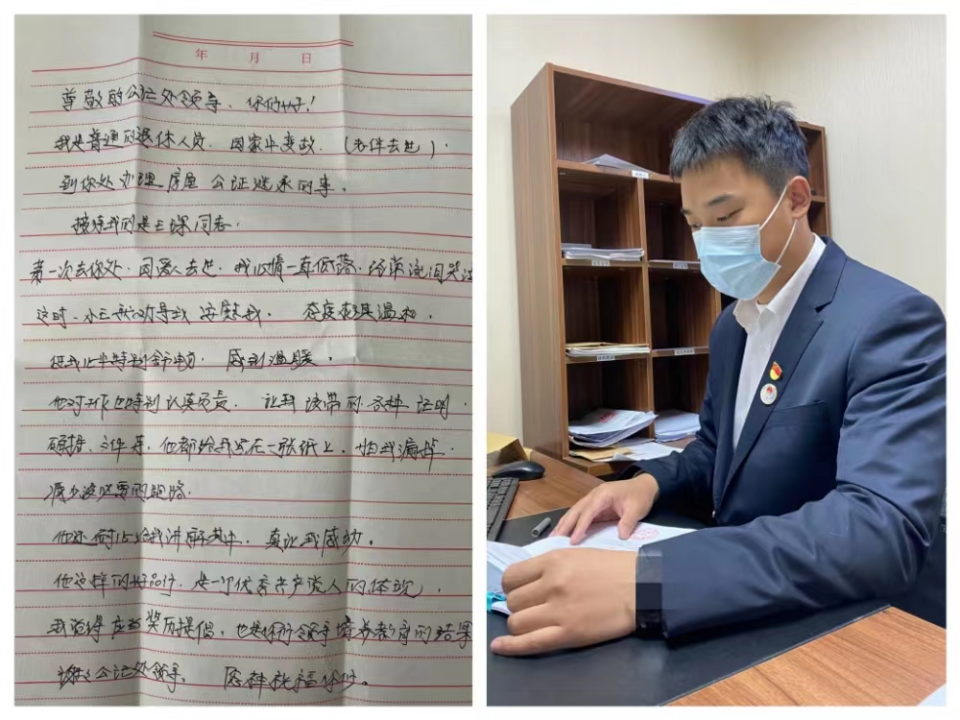 年 月 日
尊敬的公证处领导,你们好!
我是普通的退休人员,因家中变故,(老伴去世),
到你处办理房屋公证继承的事。
接待我的是王琛同志。
第一次去你处,因爱人去世,我心情一直低落,经常流泪哭泣
这时,小王就劝导我 安慰我。态度极其温和,
使我心中特别 感到温暖。
他对工作也特别认真负责,让我该带的各种证明,
文件等,他都给我写在一张纸上,怕我漏掉,
减少没必要的跑路。
他还耐心给我讲解其中,真让我感动。
他这样的好品行,是一个优秀共产党人的体现,
我觉得应当奖励提倡,也是你们领导培养教育的结果
谢谢公证处领导。